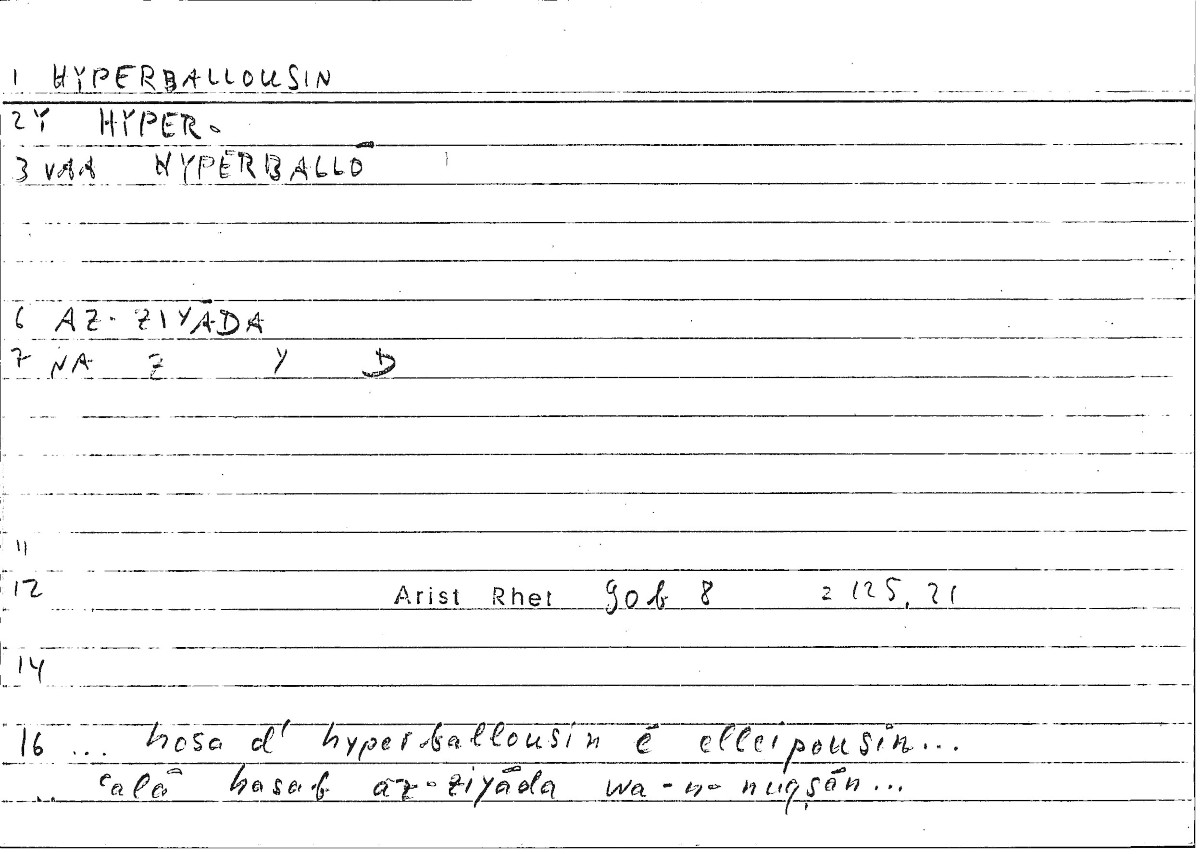 1 HYPERBALLOUSIN
2Y HYPER-
3 VAA HYPERBALLŌ
6 AZ-ZIYĀDA
7 NA Z Y D
11
12 Arist Rhet 90b 8 = 125, 21
14
16 ... hosa d' hyperballousin ē elleipousin...
.. ʿalā ḥasab az-ziyāda wa-n-nuqṣān...